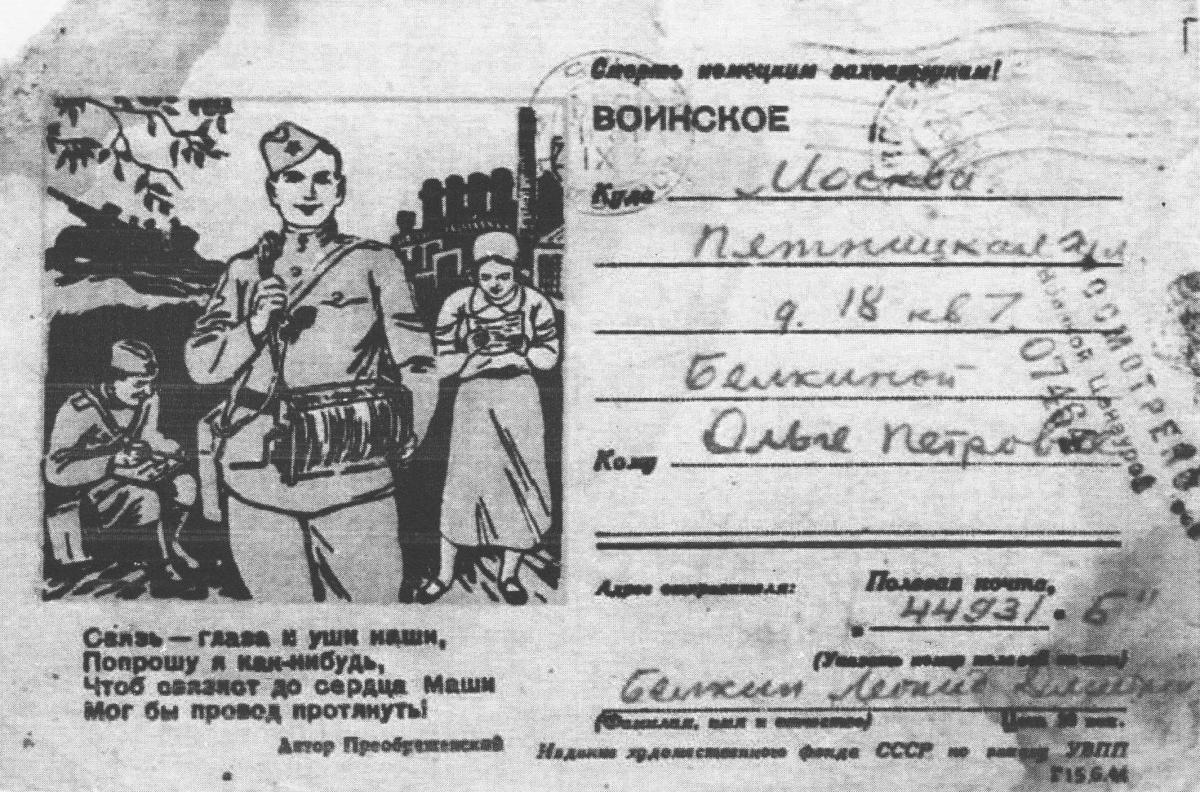 Смерть немецким захватчикам!
ВОИНСКОЕ
IX
Куда Москва.
Пятницкая ул
д. 18 кв 7.
Белкиной
Кому Ольге Петровне
ОСМОТРЕНО
Военной Цензурой
Адрес отправителя:
Полевая почта,
44931 "Б"
(Указать номер полевой почты)
Белкин Леонид
(Фамилия, имя и отчество)
Издание художественного фонда СССР по заказу УВПП
Связь — глаза и уши наши,
Попрошу я как-нибудь,
Чтоб связист до сердца Маши
Мог бы провод протянуть!
Автор Преображенский